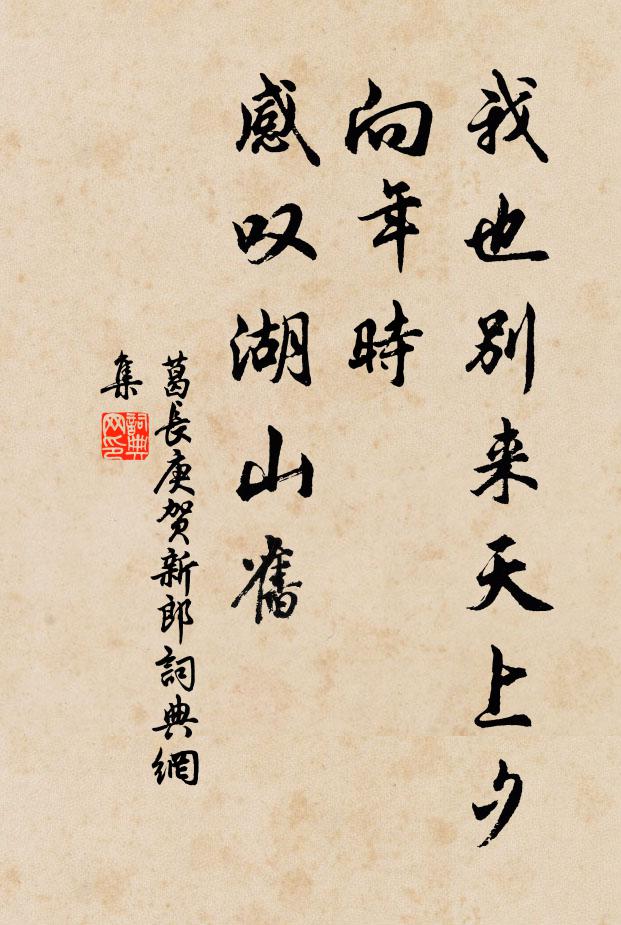 我也别来天上夕
向年時
感叹湖山舊
葛長庚贺新郎詞典網
集
詞典
网印